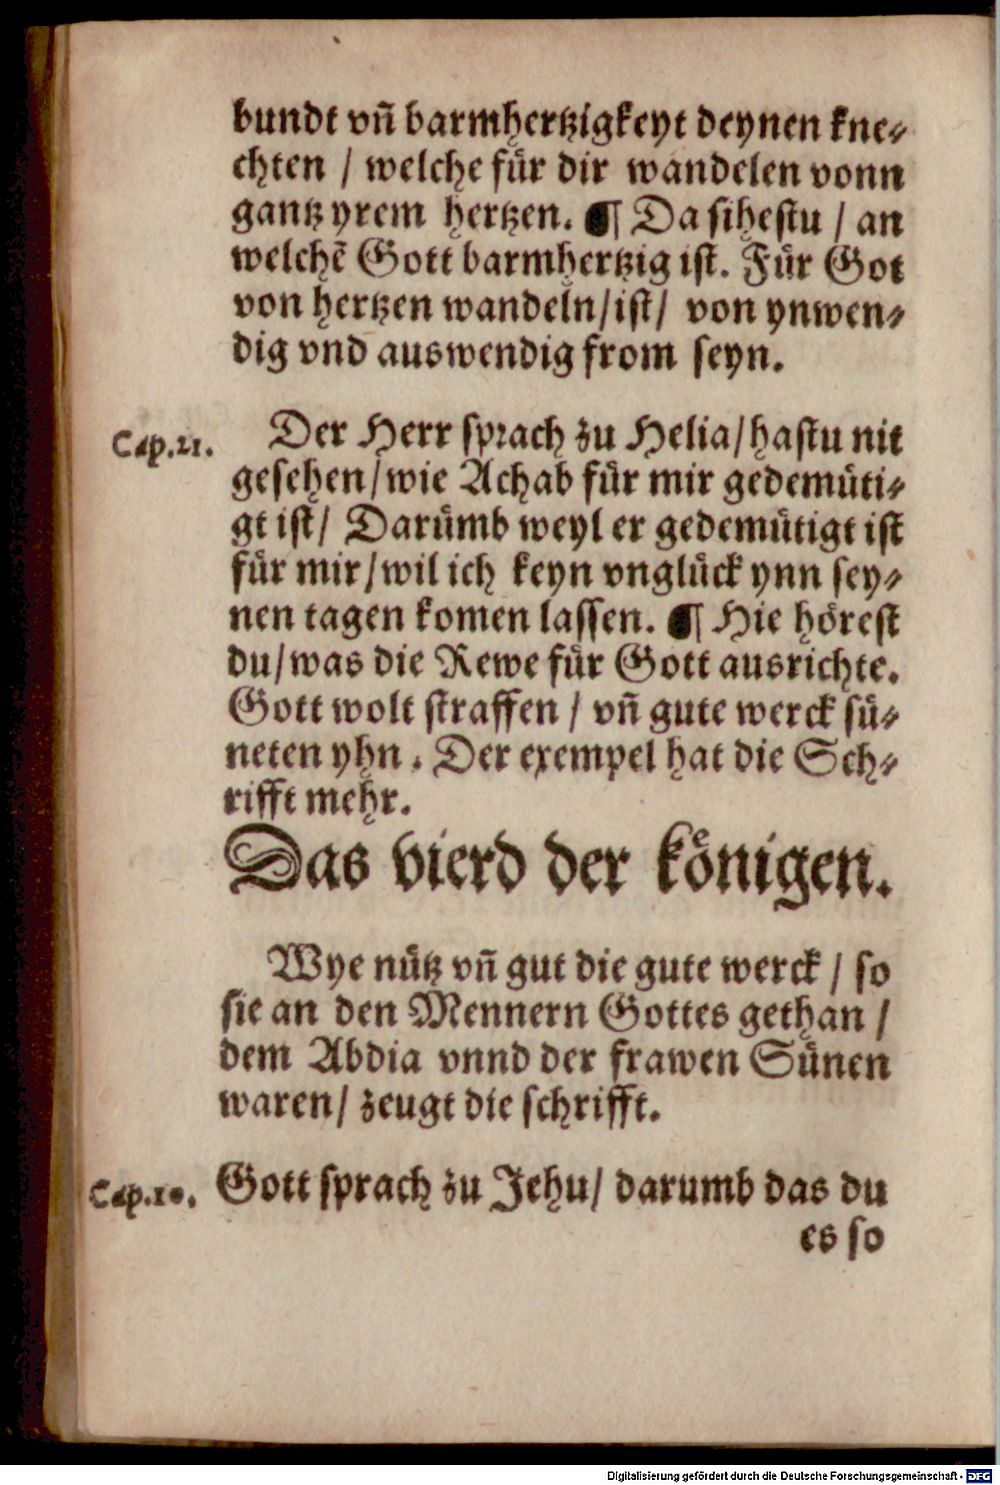 bundt vñ barmhertzigkeyt deynen kne⸗
chten / welche für dir wandelen vonn
gantz yrem hertzen. ¶ Da sihestu / an
welchē Gott barmhertzig ist. Für Got
von hertzen wandeln/ist/ von ynwen⸗
dig vnd auswendig from seyn.
Cap.21. Der Herr sprach zu Helia/hastu nit
gesehen/wie Achab für mir gedemüti⸗
gt ist/ Darümb weyl er gedemütigt ist
für mir/wil ich keyn vnglück ynn sey⸗
nen tagen komen lassen. ¶ Hie hörest
du/was die Rewe für Gott ausrichte.
Gott wolt straffen / vñ gute werck sü⸗
neten yhn. Der exempel hat die Sch⸗
rifft mehr.
Das vierd der königen.
Wye nütz vñ gut die gute werck / so
sie an den Mennern Gottes gethan /
dem Abdia vnnd der frawen Sünen
waren/ zeugt die schrifft.
Cap.10. Gott sprach zu Jehu/ darumb das du
es so
Digitalisierung gefördert durch die Deutsche Forschungsgemeinschaft - DFG